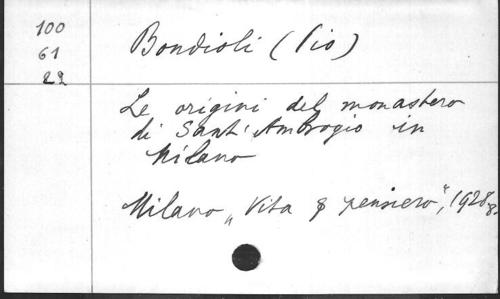 100
61
22
Bondioli (Pio)
Le origini del monastero
di Sant' Ambrogio in
Milano
Milano „Vita & pensiero", 1928, 8.